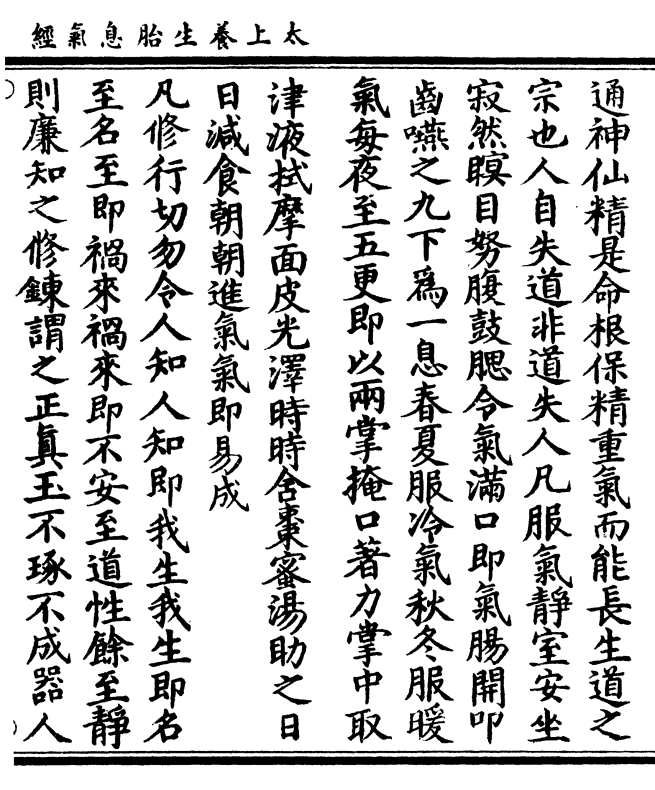 太上養生胎息氣經
通神仙精是命根保精重氣而能長生道之
宗也人自失道非道失人凡服氣靜室安坐
寂然瞑目努腹鼓腮令氣滿口即氣腸開叩
齒嚥之九下爲一息春夏服冷氣秋冬服暖
氣每夜至五更即以兩掌掩口著力掌中取
津液拭摩面皮光澤時時含棗蜜湯助之日
日減食朝朝進氣氣即易成
凡修行切勿令人知人知即我生我生即名
至名至即禍來禍來即不安至道性餘至靜
則廉知之修鍊謂之正真玉不琢不成器人